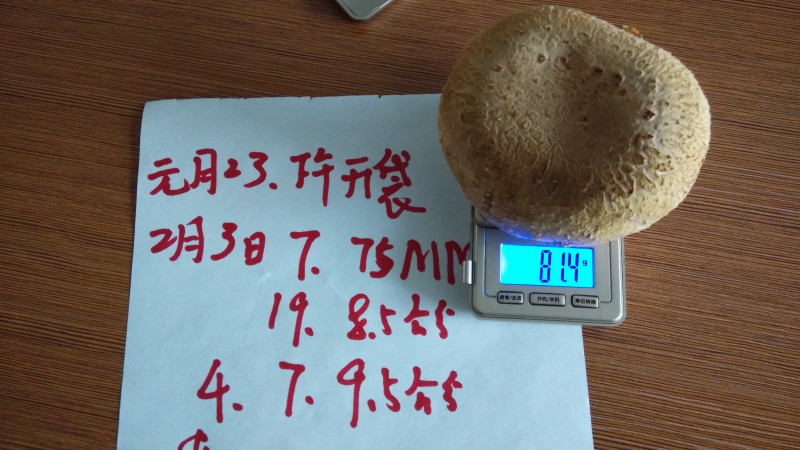 元月23.下午开袋
2月3日 7. 75MM
19. 8.5公分
4. 7. 9.5公分
81.4g
开机/关机
单位转换